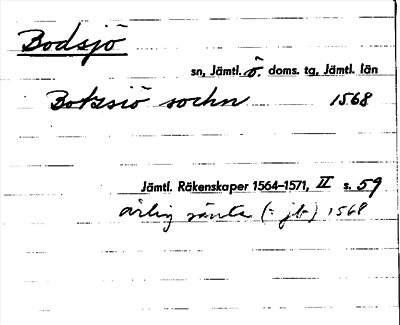 Bodsjö
sn, Jämtl. ö. doms. tg, Jämtl. län
Botzsiö sochn 1568
Jämtl. Räkenskaper 1564–1571, II s. 59
årlig ränta (: jb-) 1568